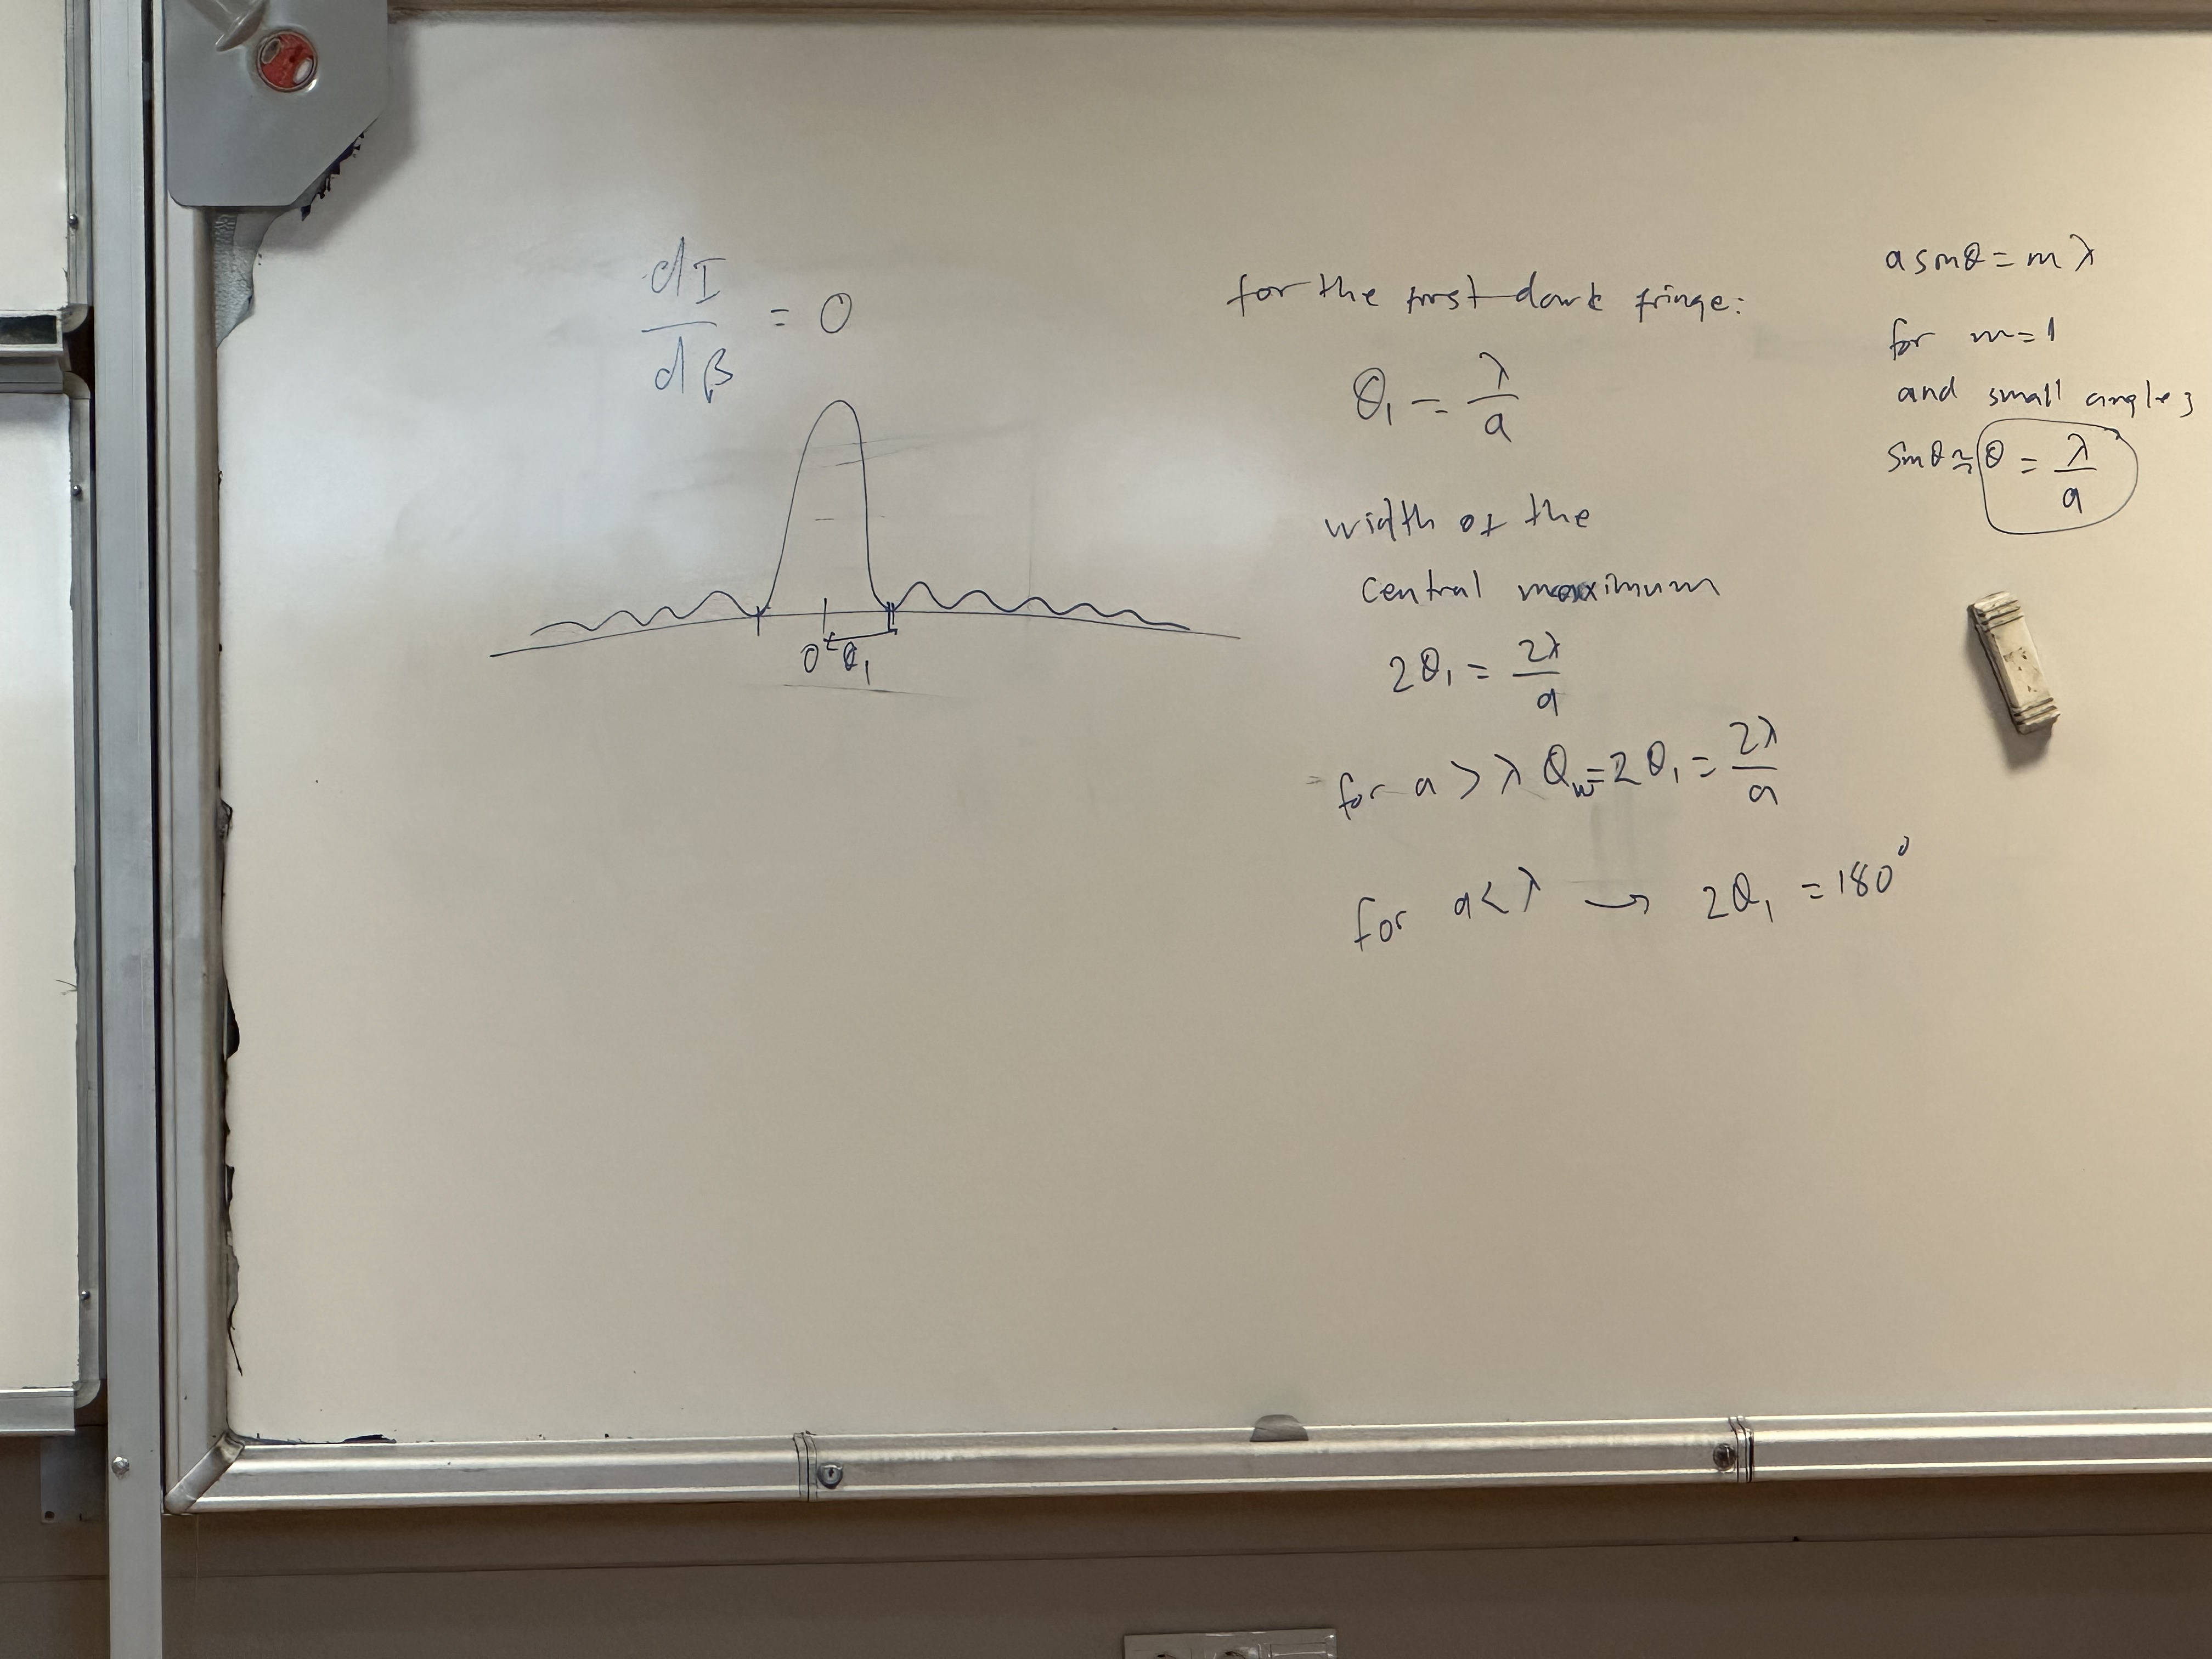 dI
—— = 0
dβ
0 θ₁
for the first dark fringe:
θ₁ = λ/a
width of the
central maximum
2θ₁ = 2λ/a
for a > λ θw = 2θ₁ = 2λ/a
for a < λ → 2θ₁ = 180°
a sinθ = m λ
for m = 1
and small angles
sinθ ≈ θ = λ/a